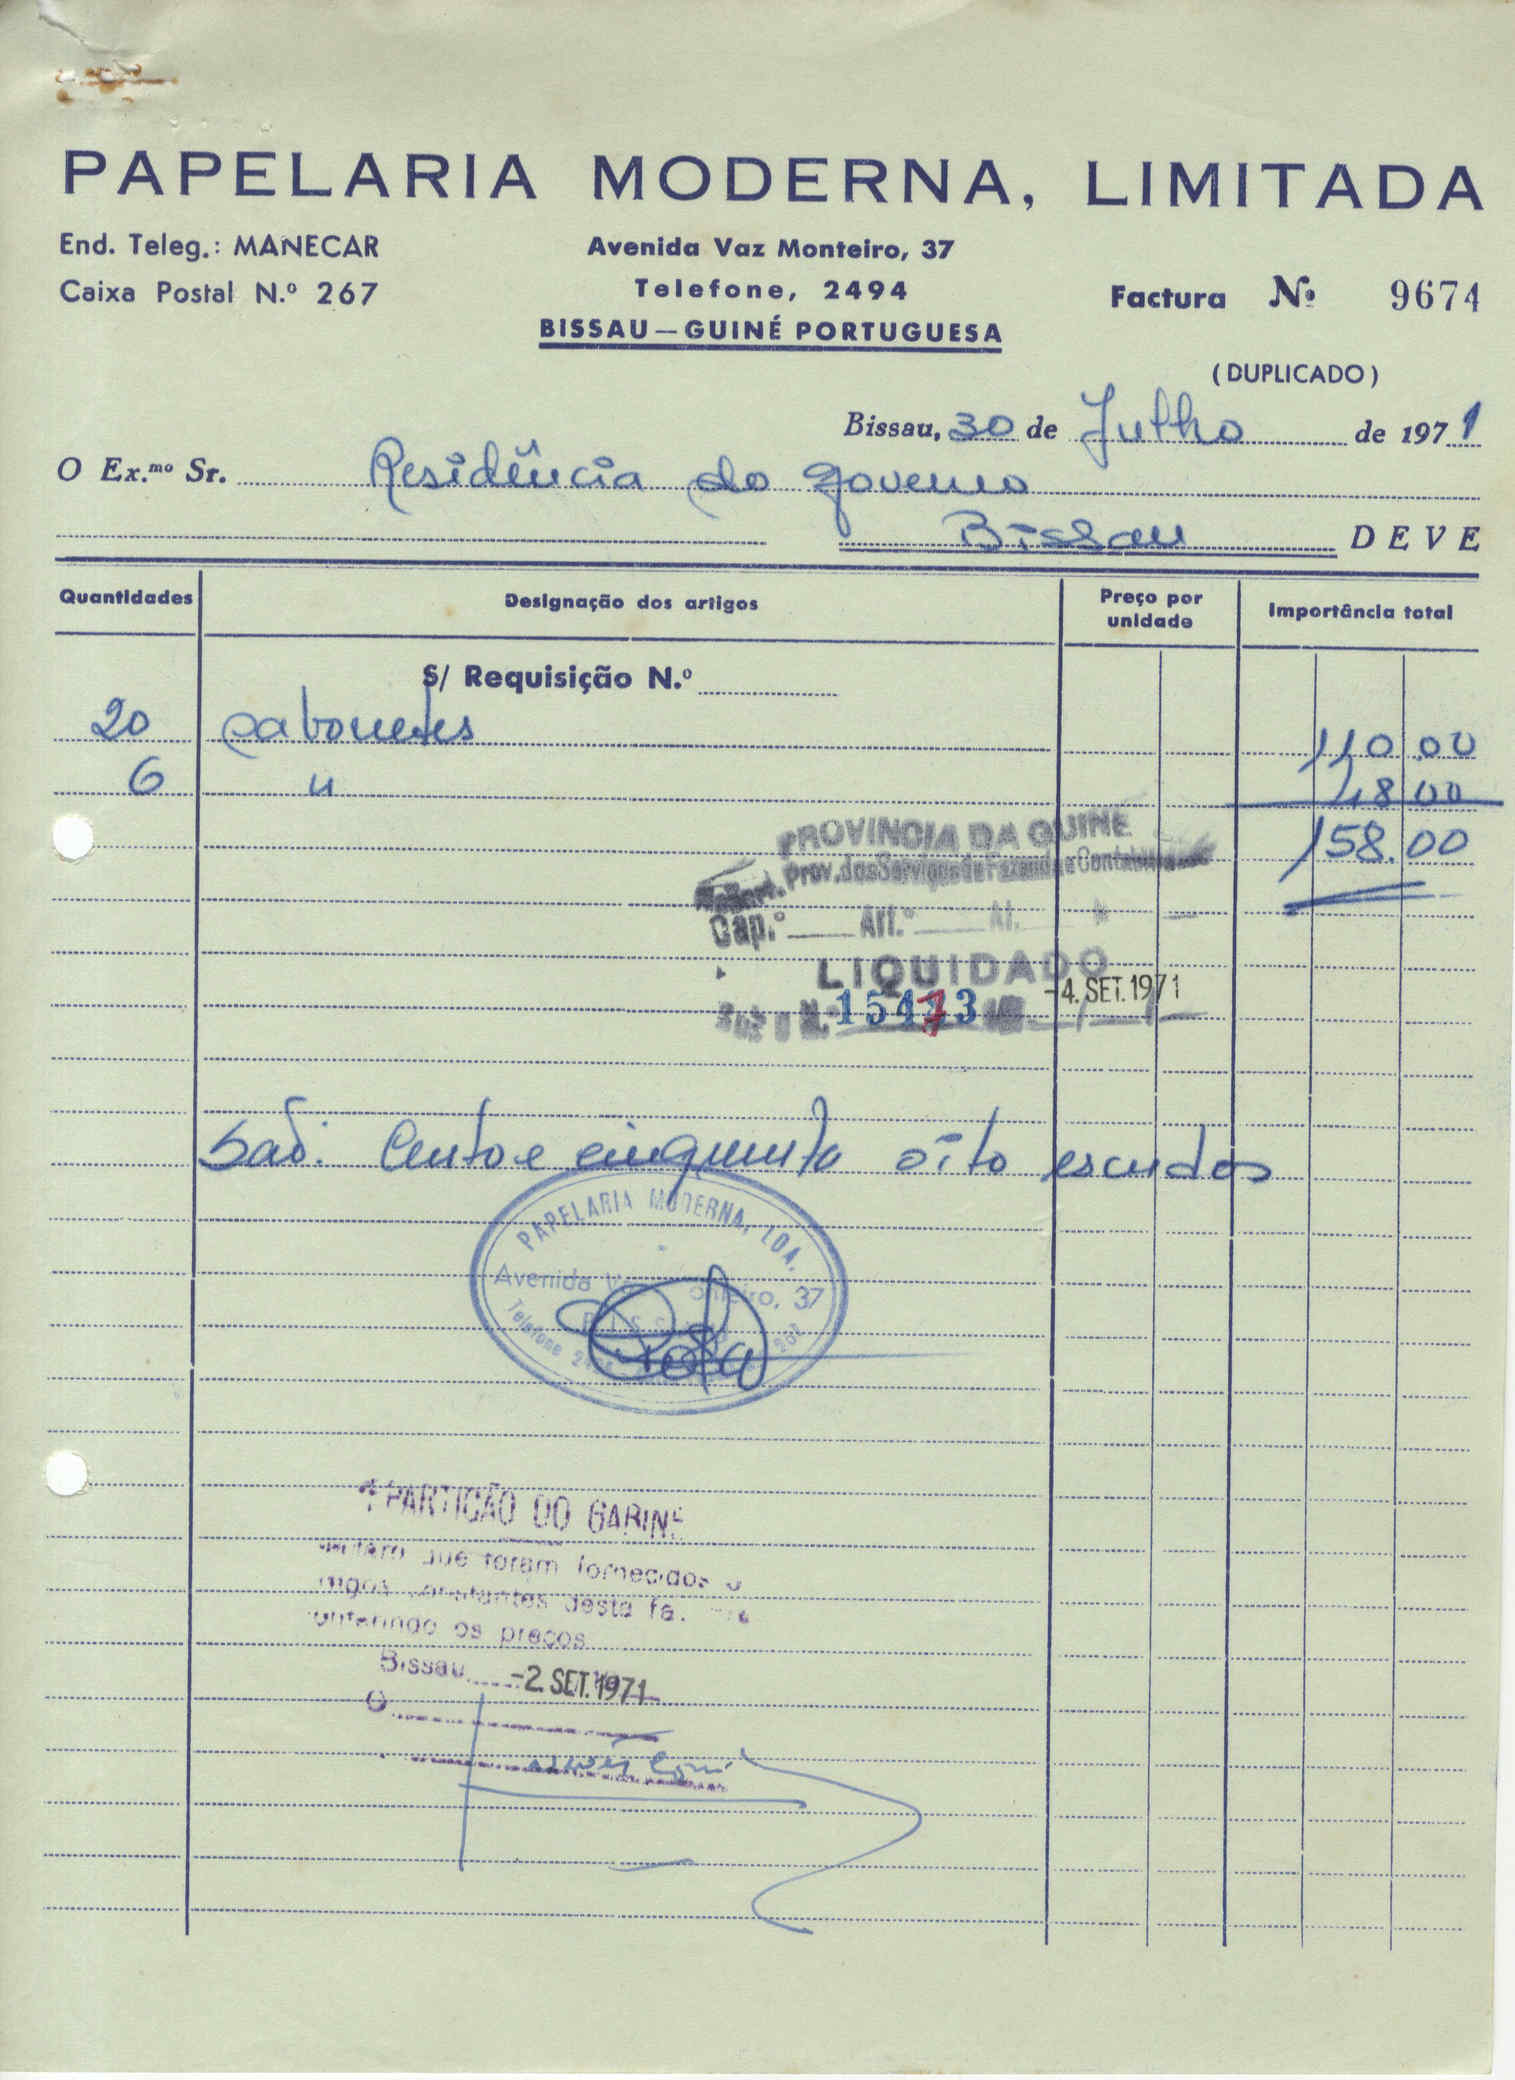 PAPELARIA MODERNA, LIMITADA
End. Teleg.: MANECAR
Caixa Postal N.º 267
Avenida Vaz Monteiro, 37
Telefone, 2494
BISSAU — GUINÉ PORTUGUESA
Factura Nº 9674
(DUPLICADO)
Bissau, 30 de Julho de 1971
O Ex.mo Sr. Residência do Governo
Bissau DEVE
Quantidades Designação dos artigos Preço por unidade Importância total
S/ Requisição N.º
20 sabonetes 110.00
6 " 48.00
158.00
PROVINCIA DA GUINÉ
Prov. dos Serviços de Fazenda e Contabilidade
Cap.º Art.º Al.
LIQUIDADO
-4. SET. 1971
São: Cento e cinquenta oito escudos
PAPELARIA MODERNA, LDA.
Avenida Vaz Monteiro, 37
BISSAU
Telefone
REPARTIÇÃO DO GABINE
que foram fornecidos
constantes desta
conferindo os preços
Bissau -2. SET. 1971
O